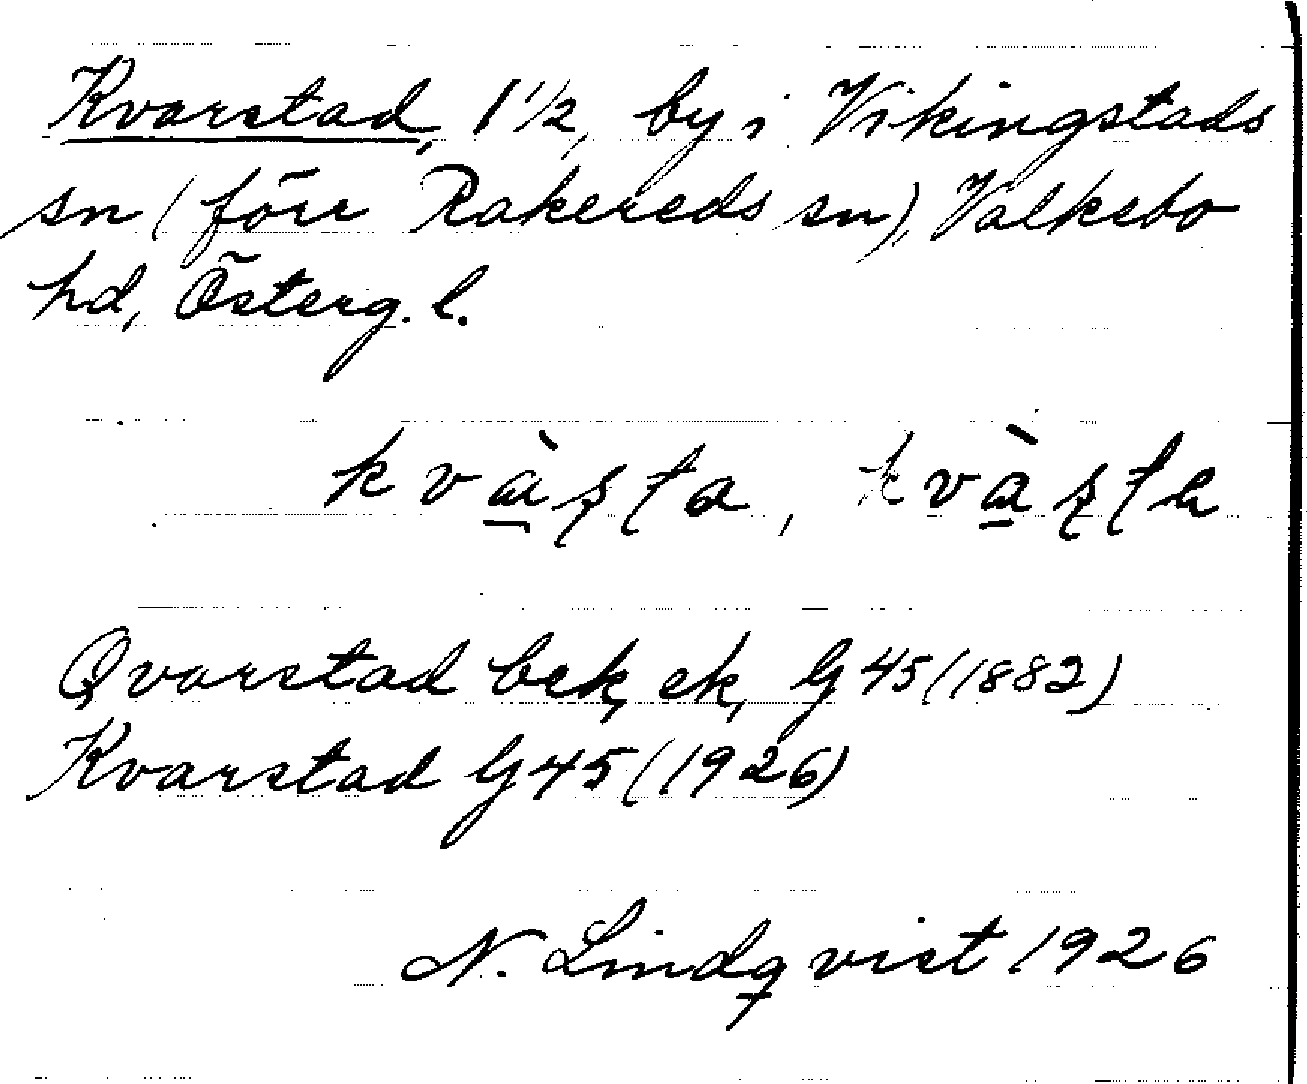 Kvarstad, 1 1/2, by i Vikingstads
sn (förr Rakereds sn), Valkebo
hd, Österg. l.
kvà̱ʂʈa, kvà̱ʂʈa
Qvarstad bek, ek, G45 (1882)
Kvarstad G45 (1926)
N. Lindqvist 1926